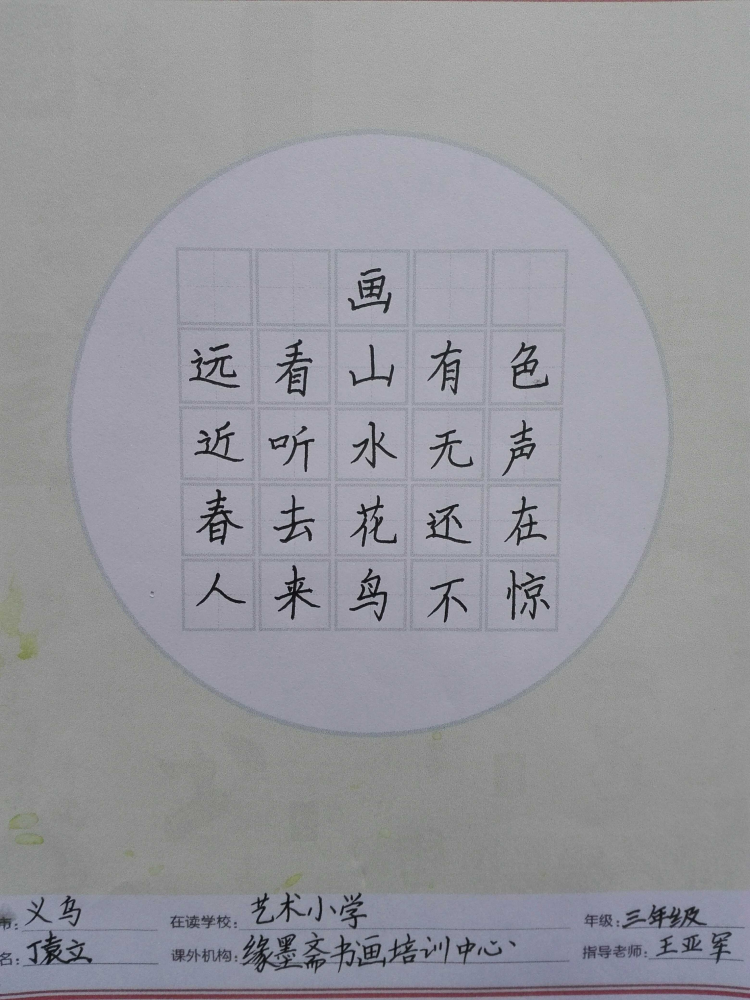 画
远看山有色
近听水无声
春去花还在
人来鸟不惊
市: 义乌 在读学校: 艺术小学 年级: 三年级
名: 丁袁立 课外机构: 缘墨斋书画培训中心 指导老师: 王亚军